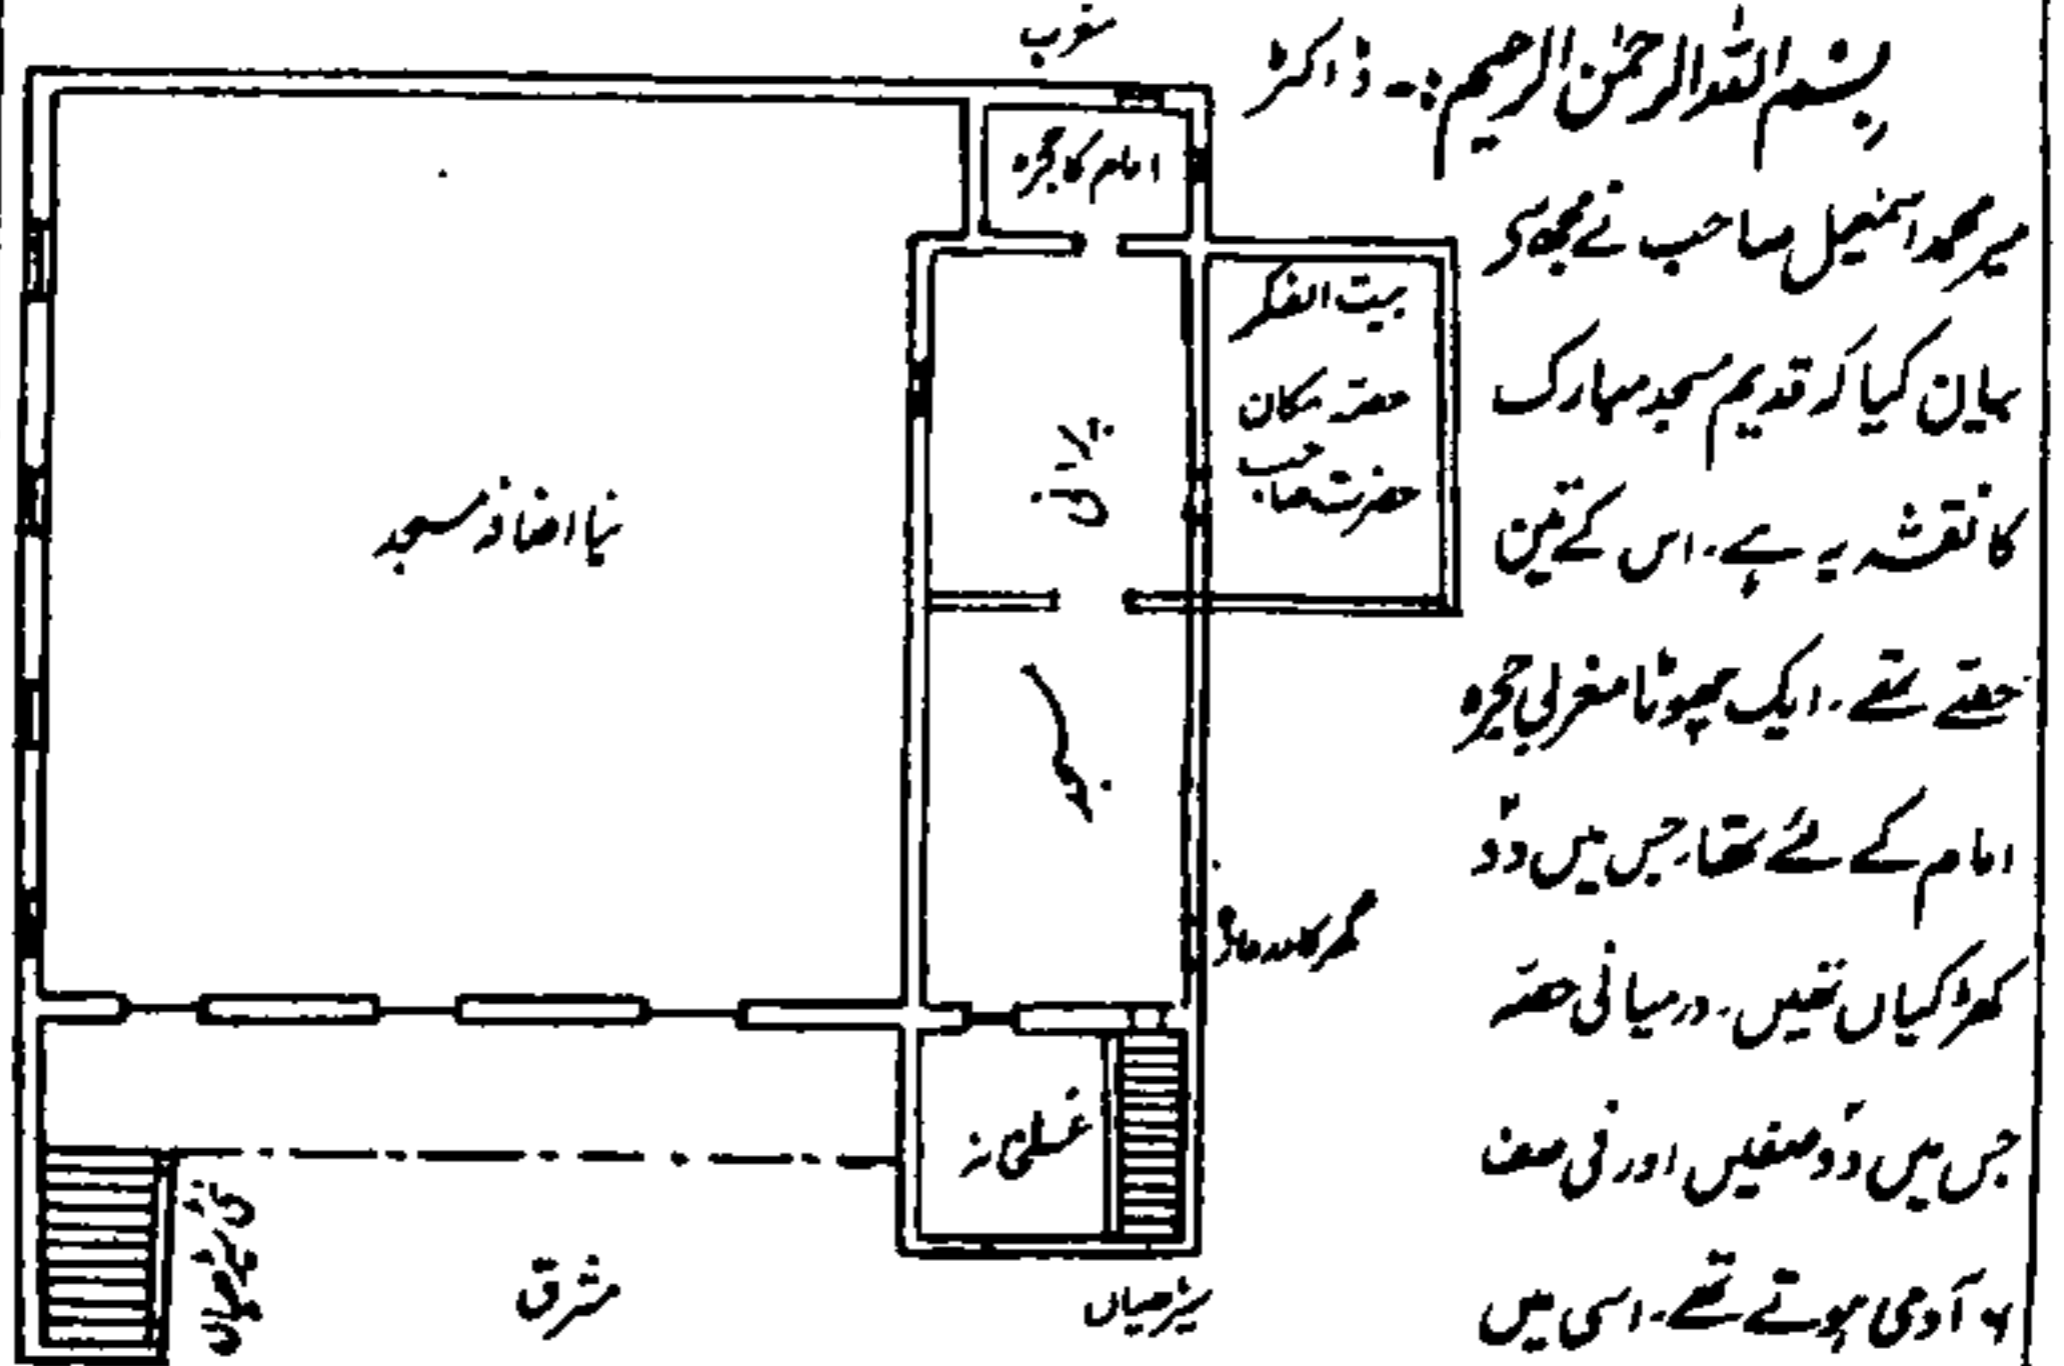 بِسْمِ اللّٰہِ الرَّحْمٰنِ الرَّحِیْمِ :- ڈاکٹر
میر محمد اسمٰعیل صاحب نے مجھ سے
بیان کیا کہ قدیم مسجد مبارک
کا نقشہ یہ ہے۔ اس کے تین
حصّے تھے۔ ایک چھوٹا مغربی حجرہ
امام کے لئے تھا، جس میں دو
کھڑکیاں تھیں۔ درمیانی حصّہ
جس میں دو صفیں اور فی صف
۶ آدمی ہوتے تھے۔ اسی میں
مغرب
امام کا حجرہ
بیت الفکر
حصّہ مکان
حضرت صاحب
پرانی
نیا اضافہ مسجد
گھر کا دروازہ
غسل خانہ
نئی سیڑھیاں
مشرق
سیڑھیاں